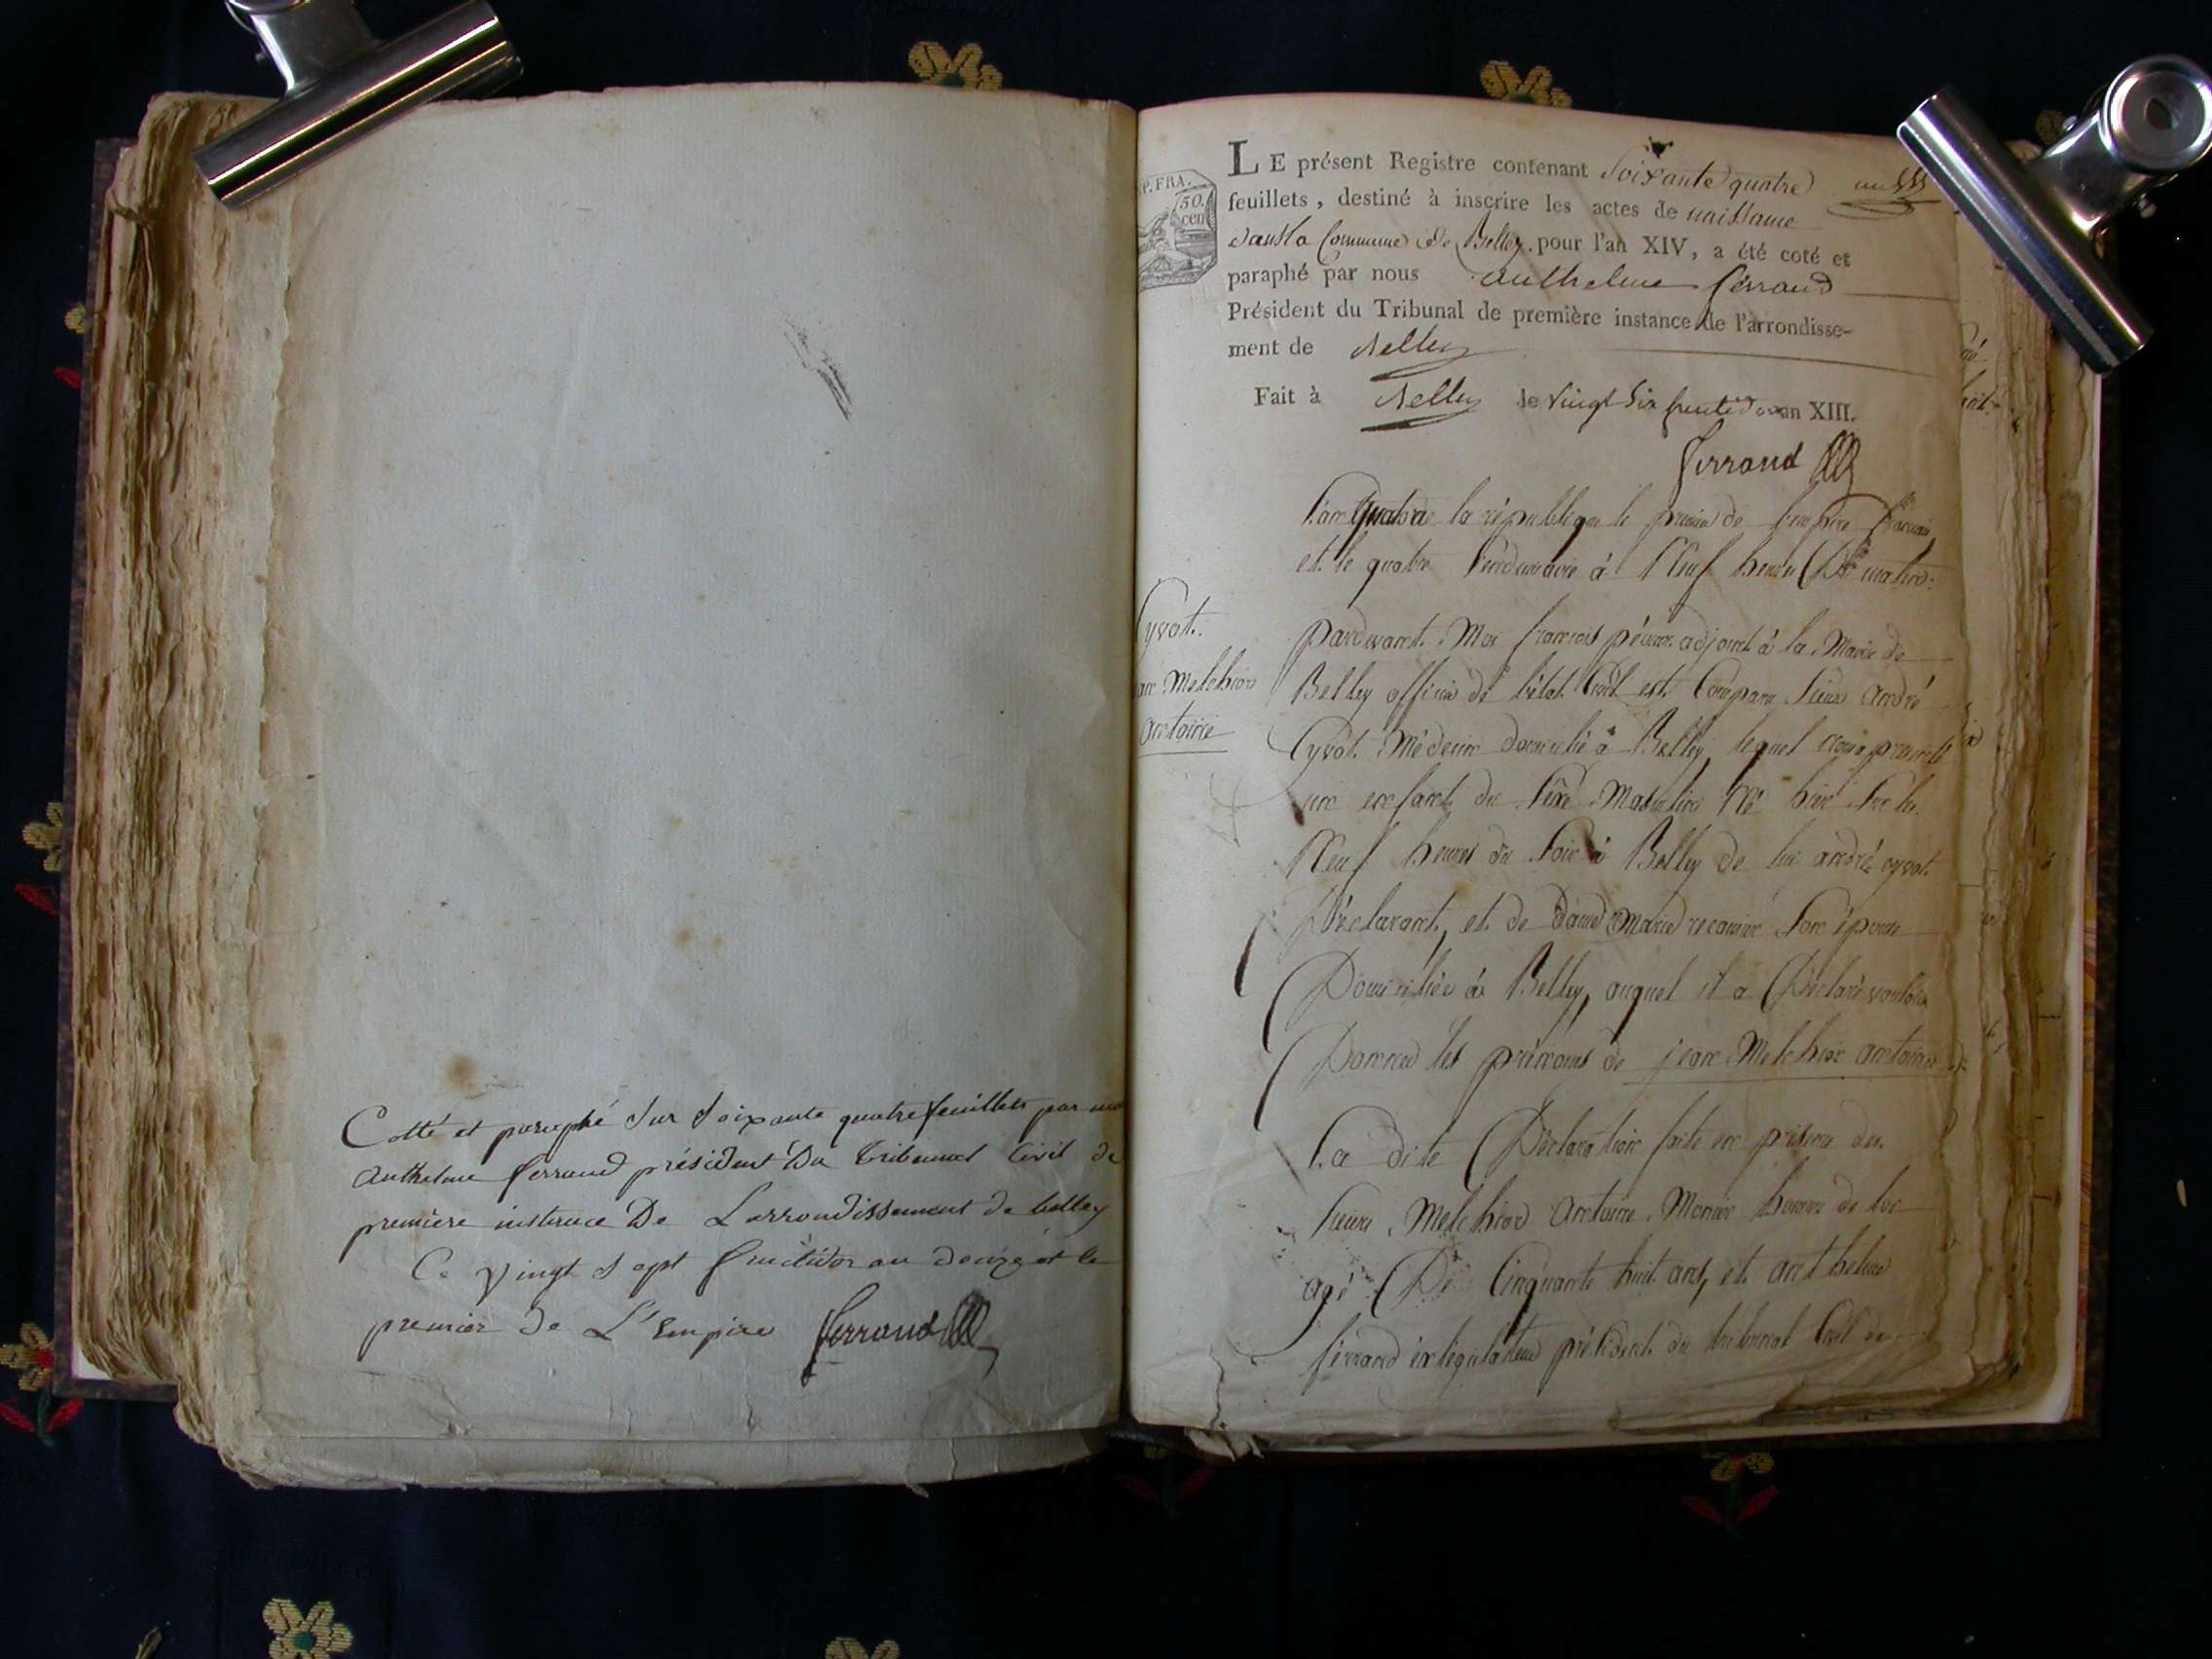 Cotté et paraphé sur soixante quatre feuillets par
anthelme ferrand président Du tribunal Civil de
première instance De Larrondissement de belley
Ce vingt sept fructidor an douze et le
premier de L'Empire ferrand
P. FRA.
50.
cen
LE présent Registre contenant Soixante quatre
feuillets, destiné à inscrire les actes de naissance
dans la Commune de Belley pour l'an XIV, a été coté et
paraphé par nous anthelme ferrand
Président du Tribunal de première instance de l'arrondisse-
ment de Belley
Fait à Belley le vingt six fructidor an XIII.
ferrand
cyvot.
Melchior
antoine
L'an quatorze la république le premier de l'empire français
et le quatre Vendemiaire à Neuf heures Du matin.
Pardevant Moi francois adjoint à la Mairie de
Belley officier de l'état Civil est Comparu Sieur andré
Cyvot Médecin domicilié à Belley lequel nous a presenté
un enfant du Sexe Masculin Né hier Sur les
Neuf heures du Soir à Belley de lui andré cyvot
Déclarant, et de dame Marie recamier Son épouse
Domiciliée à Belley, auquel il a Déclaré vouloir
Donner les prénoms de jean Melchior antoine
La dite Déclaration faite en présence des
Sieurs Melchior antoine Monier homme de loi
agé De Cinquante huit ans, et anthelme
ferrand ex législateur président du tribunal Civil de